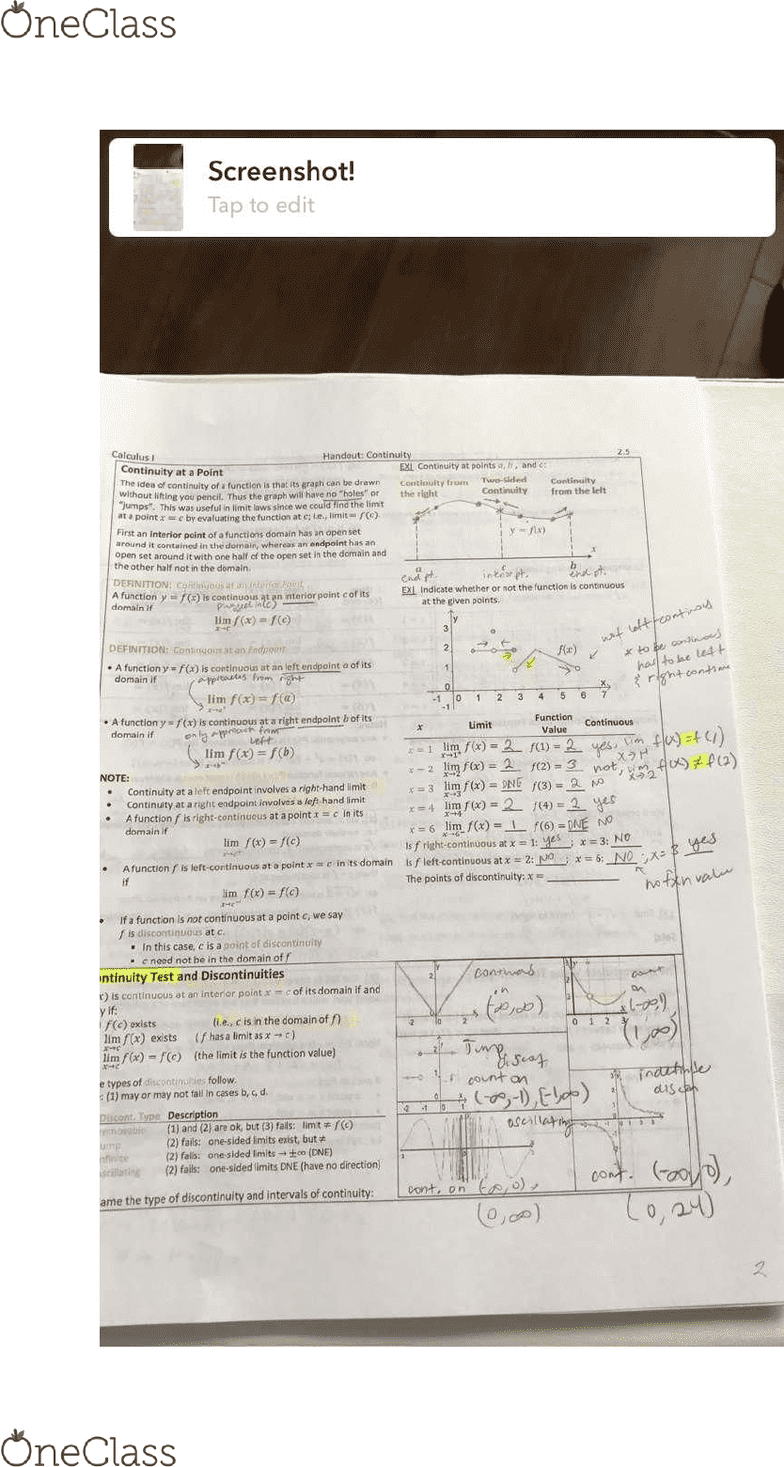 OneClass
Screenshot!
Tap to edit
Calculus I Handout: Continuity 2.5
Continuity at a Point
The idea of continuity of a function is that its graph can be drawn
without lifting you pencil. Thus the graph will have no "holes" or
"jumps". This was useful in limit laws since we could find the limit
at a point x = c by evaluating the function at c; i.e., limit = f(c).
First an interior point of a functions domain has an open set
around it contained in the domain, whereas an endpoint has an
open set around it with one half of the open set in the domain and
the other half not in the domain.
DEFINITION: Continuous at an Interior Point
A function y = f(x) is continuous at an interior point c of its
domain if
lim f(x) = f(c)
x→c
DEFINITION: Continuous at an Endpoint
• A function y = f(x) is continuous at an left endpoint a of its
domain if approaches from right
lim f(x) = f(a)
• A function y = f(x) is continuous at a right endpoint b of its
domain if only approach from
left
lim f(x) = f(b)
NOTE:
• Continuity at a left endpoint involves a right-hand limit
• Continuity at a right endpoint involves a left-hand limit
• A function f is right-continuous at a point x = c in its
domain if
lim f(x) = f(c)
• A function f is left-continuous at a point x = c in its domain
if
lim f(x) = f(c)
• If a function is not continuous at a point c, we say
f is discontinuous at c.
▪ In this case, c is a point of discontinuity
▪ c need not be in the domain of f
EX| Continuity at points a, b, and c:
Continuity from Two-Sided Continuity
the right Continuity from the left
y = f(x)
x
a c b
end pt. interior pt. end pt.
EX| Indicate whether or not the function is continuous
at the given points.
y
3
2
1
0
-1 0 1 2 3 4 5 6 7
-1
f(x)
x
not left-continous
x to be continous
has to be left
& right continue
x Limit Function Value Continuous
x = 1 lim f(x) = 2 f(1) = 2 yes, lim f(x) = f(1)
x = 2 lim f(x) = 2 f(2) = 3 not, lim f(x) ≠ f(2)
x = 3 lim f(x) = DNE f(3) = 2 NO
x = 4 lim f(x) = 2 f(4) = 2 yes
x = 6 lim f(x) = 1 f(6) = DNE NO
Is f right-continuous at x = 1: yes ; x = 3: NO
Is f left-continuous at x = 2: NO ; x = 6: NO ; x = 3 yes
The points of discontinuity: x =
no fxn value
ntinuity Test and Discontinuities
x) is continuous at an interior point x = c of its domain if and
y if:
f(c) exists (i.e., c is in the domain of f)
lim f(x) exists (f has a limit as x → c)
lim f(x) = f(c) (the limit is the function value)
e types of discontinuities follow.
: (1) may or may not fail in cases b, c, d.
Discont. Type Description
removable (1) and (2) are ok, but (3) fails: limit ≠ f(c)
ump (2) fails: one-sided limits exist, but ≠
nfinite (2) fails: one-sided limits → ±∞ (DNE)
scillating (2) fails: one-sided limits DNE (have no direction)
ame the type of discontinuity and intervals of continuity:
(-∞, ∞)
cont
on
(-∞, 1)
(1, ∞)
Jump
discot
cont on
(-∞, -1), [-1, ∞)
oscillating
cont. on (-∞, 0),
(0, ∞)
cont. (-∞, 0),
2
OneClass